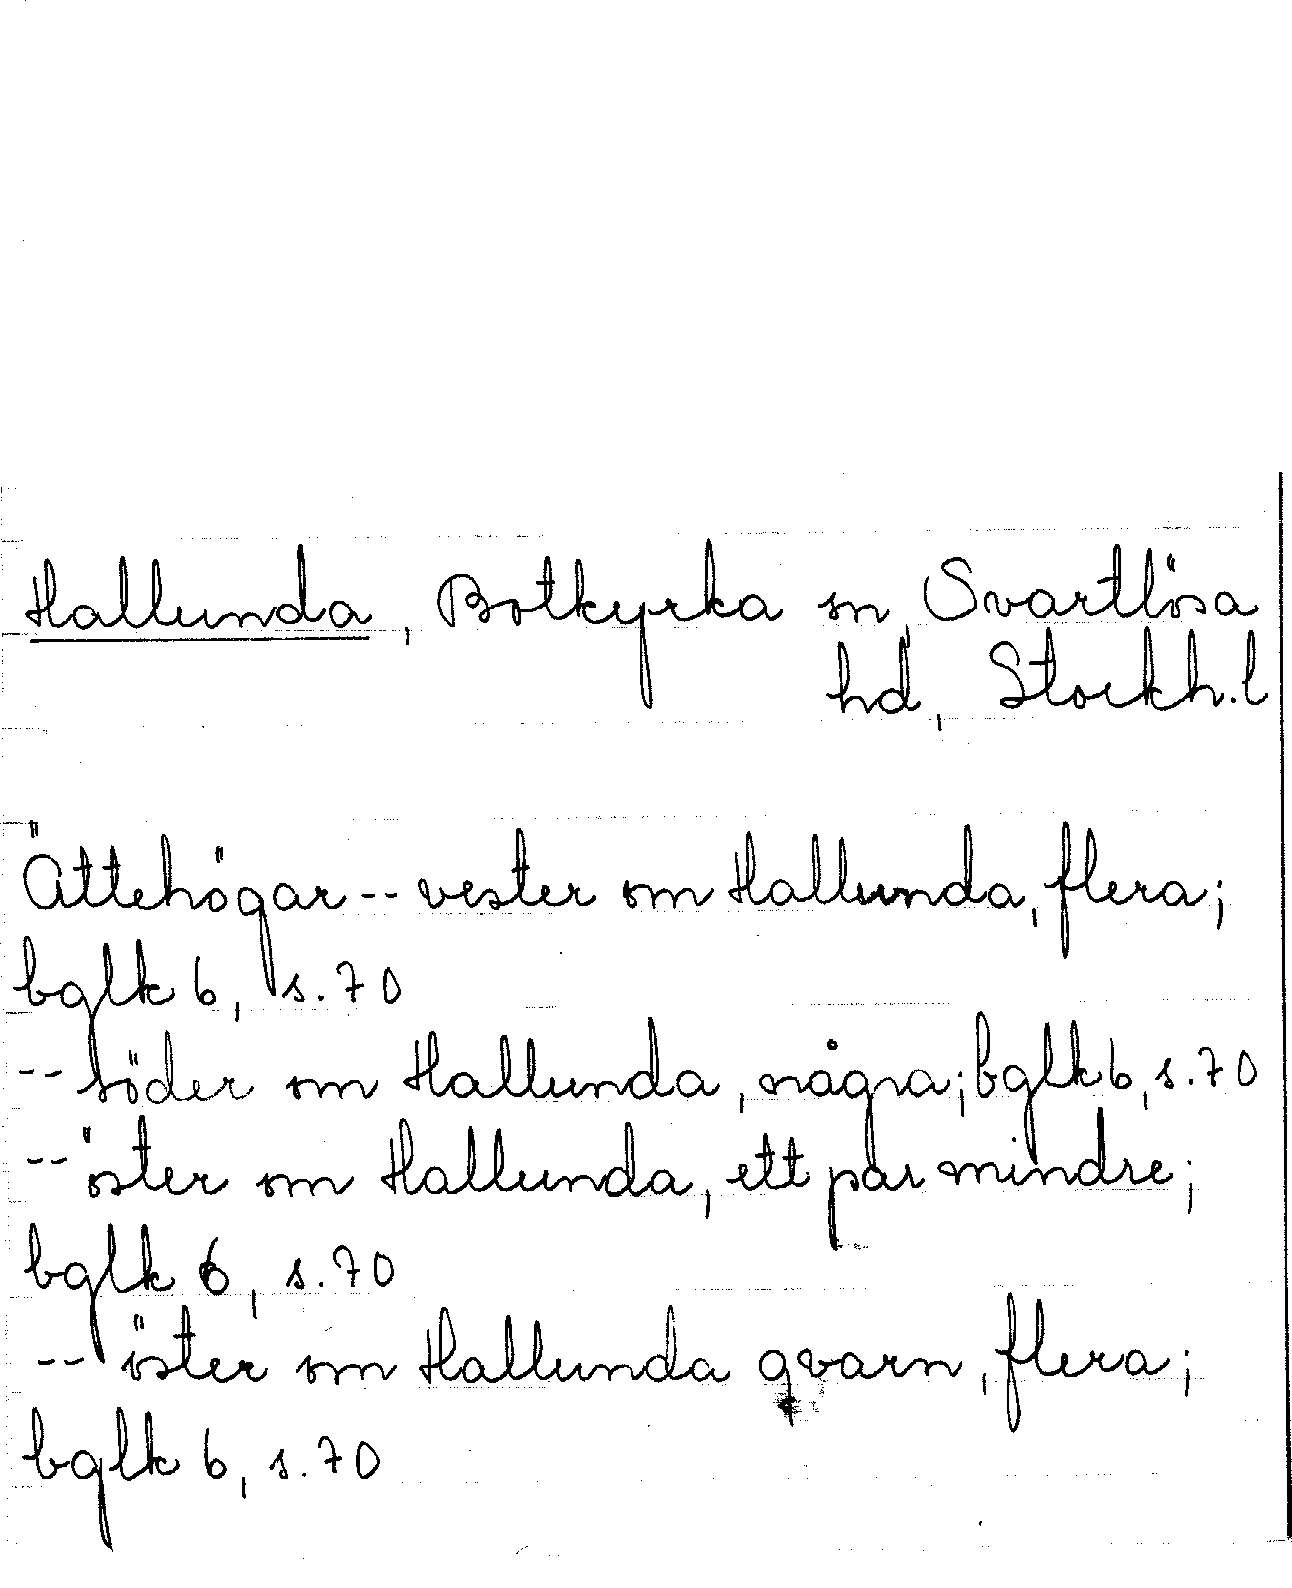 Hallunda, Botkyrka sn, Svartlösa
hd, Stockh.l
Ättehögar -- vester om Hallunda, flera;
bglk 6, s. 70
-- söder om Hallunda, några; bglk 6, s. 70
-- öster om Hallunda, ett par mindre;
bglk 6, s. 70
-- öster om Hallunda qvarn, flera;
bglk 6, s. 70